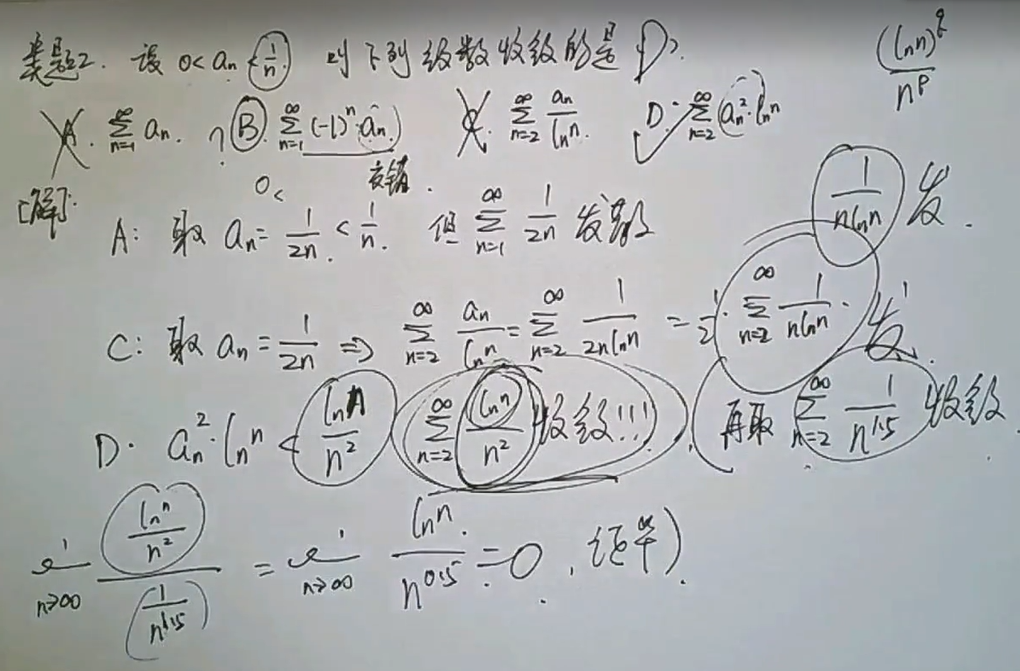 类题2. 设 0<aₙ<1/n 则下列级数收敛的是 D. (ln n)^q/n^p
A. ∑_{n=1}^∞ aₙ. B. ∑_{n=1}^∞ (-1)ⁿ·aₙ) C. ∑_{n=2}^∞ aₙ/ln n. D. ∑_{n=2}^∞ aₙ²·ln n
0< 交错.
[解]:
A: 取 aₙ=1/2n<1/n. 但 ∑_{n=1}^∞ 1/2n 发散 1/(n ln n) 发.
C: 取 aₙ=1/2n ⇒ ∑_{n=2}^∞ aₙ/ln n=∑_{n=2}^∞ 1/(2n ln n)=1/2·∑_{n=2}^∞ 1/(n ln n). 发.
D. aₙ²·ln n<ln n/n² (∑_{n=2}^∞ ln n/n² 收敛!!!). (再取 ∑_{n=2}^∞ 1/n^1.5 收敛
lim_{n→∞} (ln n/n²)/(1/n^1.5) = lim_{n→∞} ln n/n^0.5=0. 证毕)